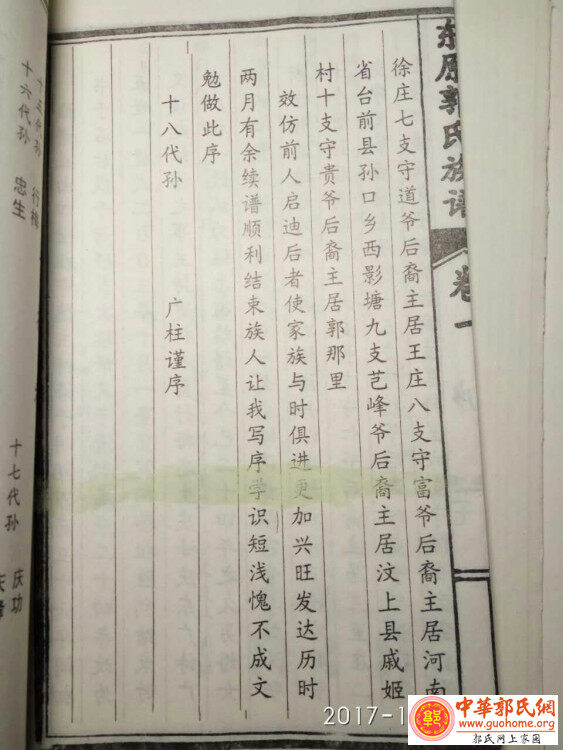 东原郭氏族谱
卷一
徐庄七支守道爷后裔主居王庄八支守富爷后裔主居河南
省台前县孙口乡西影塘九支芑峰爷后裔主居汶上县戚姬
村十支守贵爷后裔主居郭那里
效仿前人启迪后者使家族与时俱进更加兴旺发达历时
两月有余续谱顺利结束族人让我写序学识短浅愧不成文
勉做此序
十八代孙 广柱谨序
十七代孙 庆功
十六代孙 忠生
2017-1
中華郭氏網
www.guohome.org
郭氏网上家园